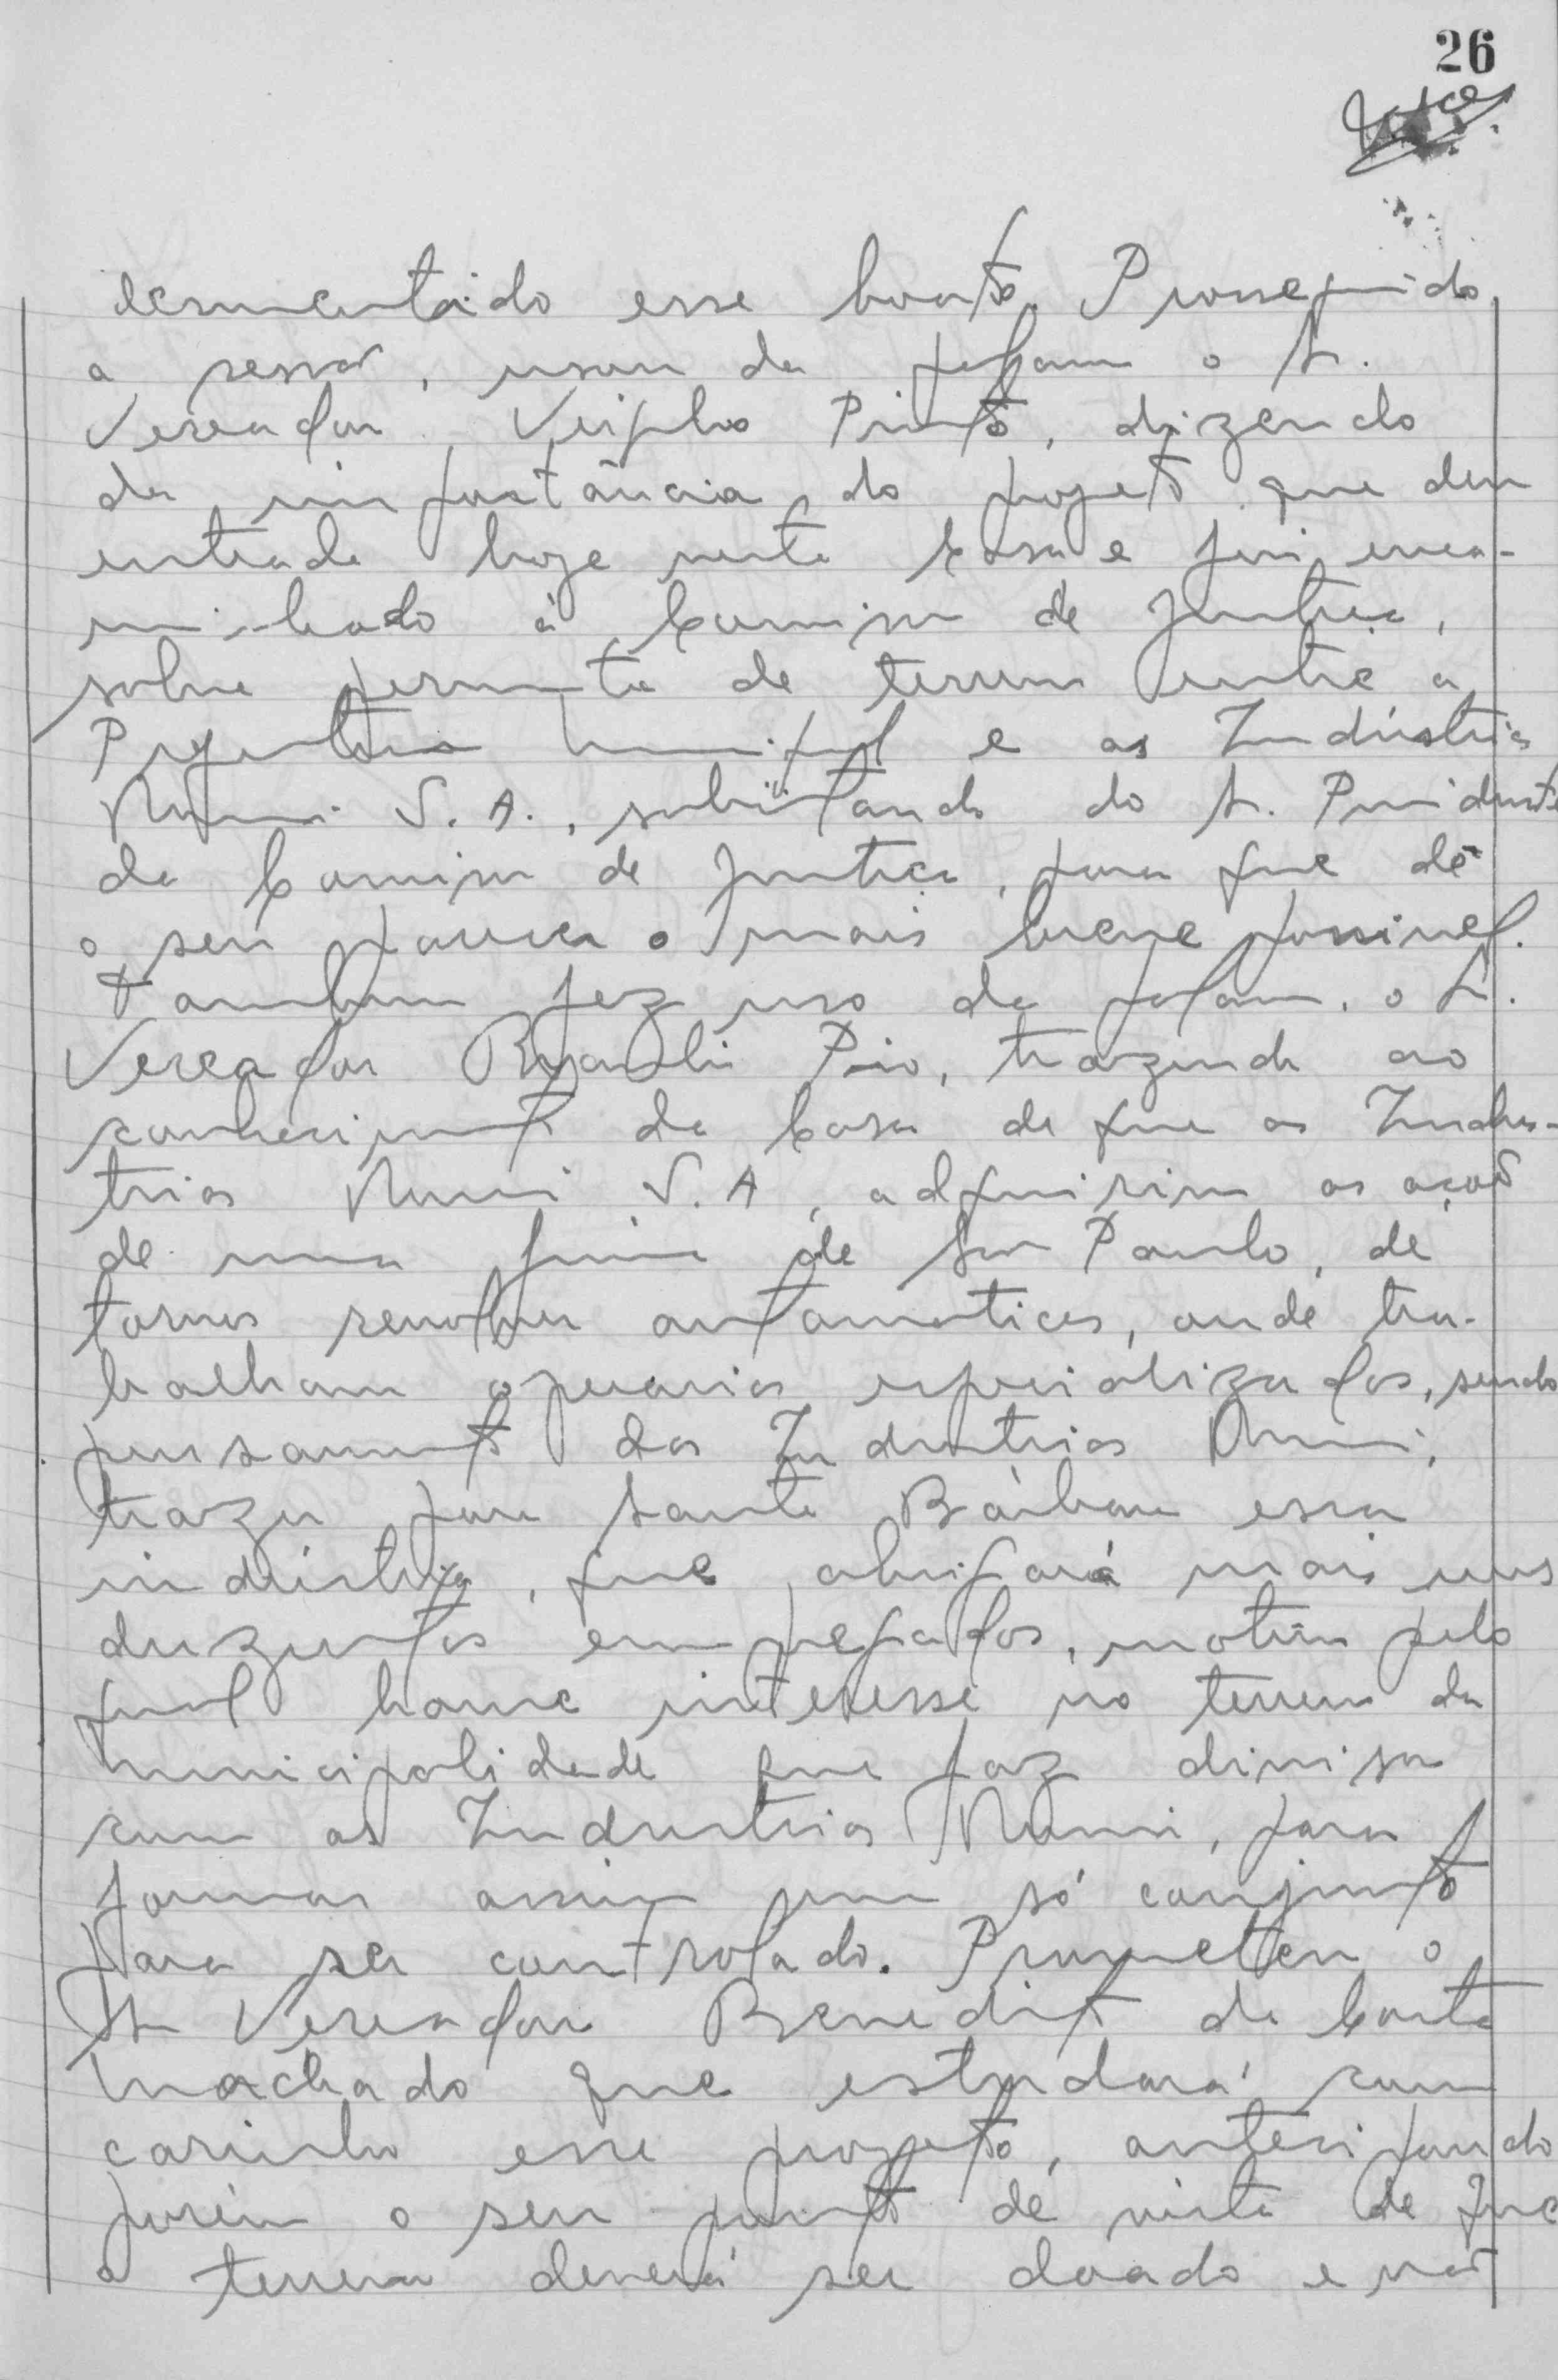 26
desmentido esse boato. Prosseguido
a sessão, usou da palavra o Sr.
Vereador Virgilio Pinto, dizendo
da importância do projeto que deu
entrada hoje nesta Casa e foi enca-
minhado à Comissão de Justiça,
sobre permuta de terreno entre a
Prefeitura Municipal e as Indústrias
Romi S. A., solicitando do Sr. Presidente
da Comissão de Justiça, para que dê
o seu parecer o mais breve possivel.
Tambem fez uso da palavra, o Sr.
Vereador Pio, trazendo ao
conhecimento da Casa de que as Indus-
trias Romi S. A, adquiriram as ações
de uma firma de São Paulo, de
tornos revolver automaticos, onde tra-
balham operarios especializados, sendo
pensamento das Industrias Romi,
trazer para Santa Bárbara essa
indústria, que abrigará mais uns
duzentos empregados, motivo pelo
qual houve interesse no terreno da
municipalidade que faz divisa
com as Industrias Romi, para
formar assim um só conjunto
para ser controlado. Prometeu o
Sr Vereador Benedito da Costa
Machado que estudará com
carinho esse projeto, antecipando
porém o seu ponto de vista de que
o terreno deverá ser doado e não